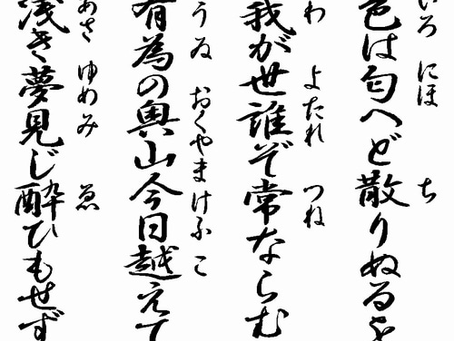 いろ にほ ち
色は匂へど散りぬるを
わ よたれ つね
我が世誰ぞ常ならむ
うゐ おくやま けふ こ
有為の奥山今日越えて
あさ ゆめみ ゑ
浅き夢見じ酔ひもせず